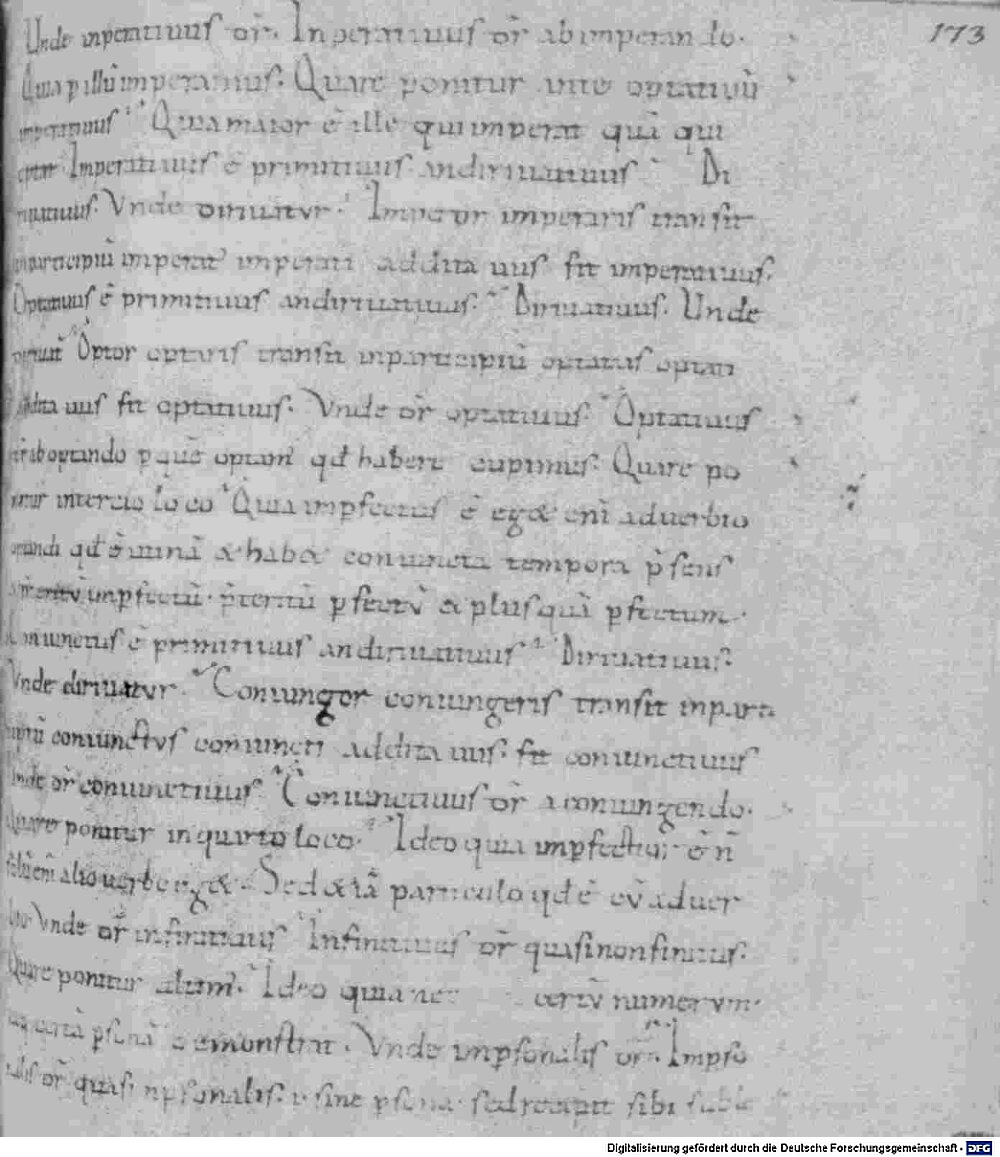 173
Unde inperatiuus or̃. Inperatiuus or̃ ab imperando.
Quia p illũ imperamus. Quare ponitur ante optatiuũ
imperatiuus Quia maior ẽ ille qui imperat quã qui
optat Imperatiuus ẽ primitiuus an diriuatiuus Di
riuatiuus. Vnde diriuatur. Imperor imperaris transit
inparticipiũ imperat' imperati addita uus fit imperatiuus.
Optatiuus ẽ primitiuus an diriuatiuus. Diriuatiuus. Unde
diriuat̃ Optor optaris transit inparticipiũ optatus optati
addita uus fit optatiuus. Vnde or̃ optatiuus. Optatiuus
or̃ ab optando p quẽ optam' qđ habere cupimus. Quare po
nitur intercio loco Quia inpfectus ẽ eg& eni aduerbio
optandi qđ & hab& coniuncta tempora p̃sens
& inpfectũ. p̃teritũ pfectũ & plusquã pfectum.
Coniunctus ẽ primitiuus an diriuatiuus Diriuatiuus.
Vnde diriuatur. Coniungor coniungeris transit inparti
cipiũ coniunctus coniuncti addita uus. fit coniunctiuus
Vnde or̃ coniunctiuus Coniunctiuus or̃ a coniungendo.
Quare ponitur in quarto loco. Ideo quia inpfectior ẽ ñ
solũ eni alio uerbo eg&. Sed & iã particulo qđ ẽ aduer
bio Vnde or̃ infinitiuus Infinitiuus or̃ quasi non finitus.
Quare ponitur Ideo quia nec certũ numerum.
neq certã psonã demonstrat. Vnde inpsonalis or̃. Impso
nalis or̃ quasi npsonalis. i sine psona sed recipit sibi
Digitalisierung gefördert durch die Deutsche Forschungsgemeinschaft - DFG